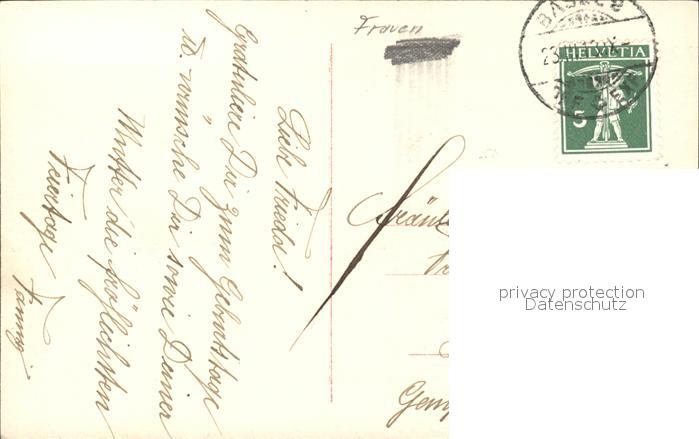 Frauen
BASEL 2
HELVETIA
5
Liebe Friedel!
Gratuliere Dir zum Geburtstage
u. wünsche Dir sowie Deiner
Mutter die fröhlichsten
Feiertage
Fanny.
Fräul
privacy protection
Datenschutz